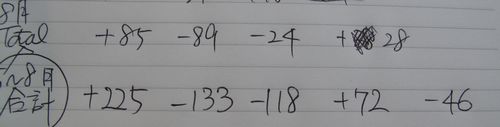 8月
Total +85 -89 -24 + 28
~8月
合計 +225 -133 -118 +72 -46